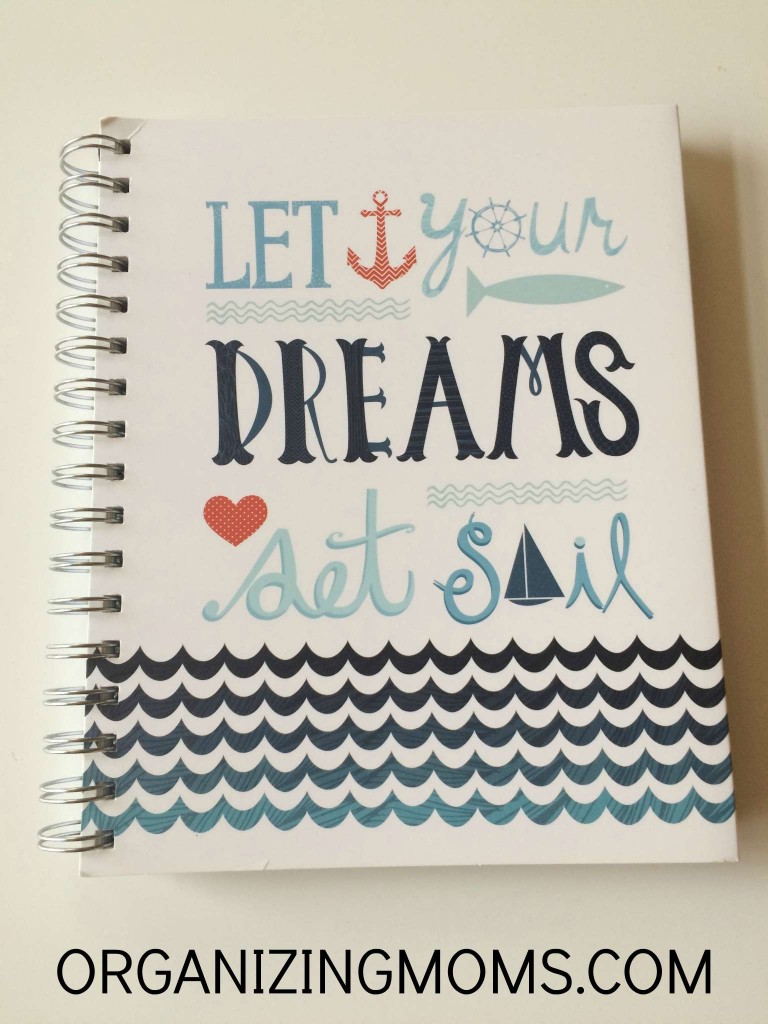 LET your
DREAMS
set Sail
ORGANIZINGMOMS.COM